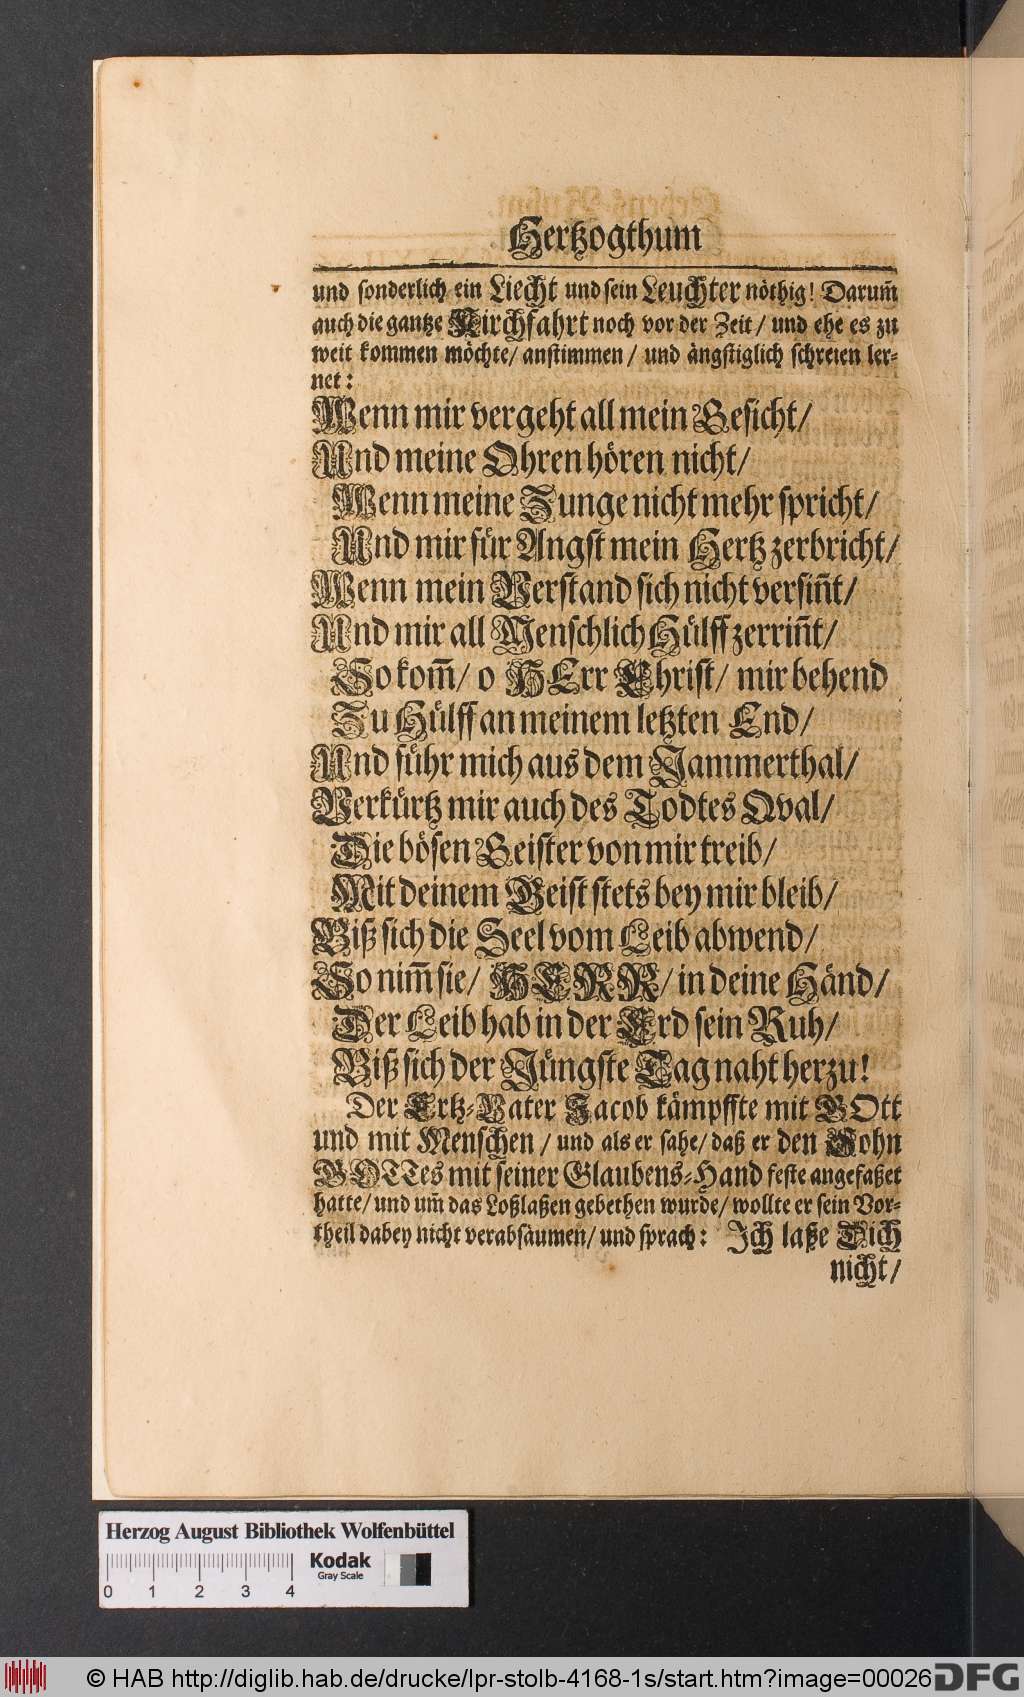 Hertzogthum
und sonderlich ein Liecht und sein Leuchter nöthig! Darum̃
auch die gantze Kirchfahrt noch vor der Zeit/ und ehe es zu
weit kommen möchte/ anstimmen/ und ängstiglich schreien ler-
net:
Wenn mir vergeht all mein Gesicht/
Und meine Ohren hören nicht/
Wenn meine Zunge nicht mehr spricht/
Und mir für Angst mein Hertz zerbricht/
Wenn mein Verstand sich nicht versiñt/
Und mir all Menschlich Hülff zerriñt/
So kom̃/ o HErr Christ/ mir behend
Zu Hülff an meinem letzten End/
Und führ mich aus dem Jammerthal/
Verkürtz mir auch des Todtes Qval/
Die bösen Geister von mir treib/
Mit deinem Geist stets bey mir bleib/
Biß sich die Seel vom Leib abwend/
So nim̃ sie/ HERR/ in deine Händ/
Der Leib hab in der Erd sein Ruh/
Biß sich der Jüngste Tag naht herzu!
Der Ertz-Vater Jacob kämpffte mit GOtt
und mit Menschen/ und als er sahe/ daß er den Sohn
GOTTes mit seiner Glaubens-Hand feste angefaßet
hatte/ und um̃ das Loßlaßen gebethen wurde/ wollte er sein Vor-
theil dabey nicht verabsäumen/ und sprach: Ich laße Dich
nicht/
Herzog August Bibliothek Wolfenbüttel
Kodak
Gray Scale
0 1 2 3 4
© HAB http://diglib.hab.de/drucke/lpr-stolb-4168-1s/start.htm?image=00026
DFG